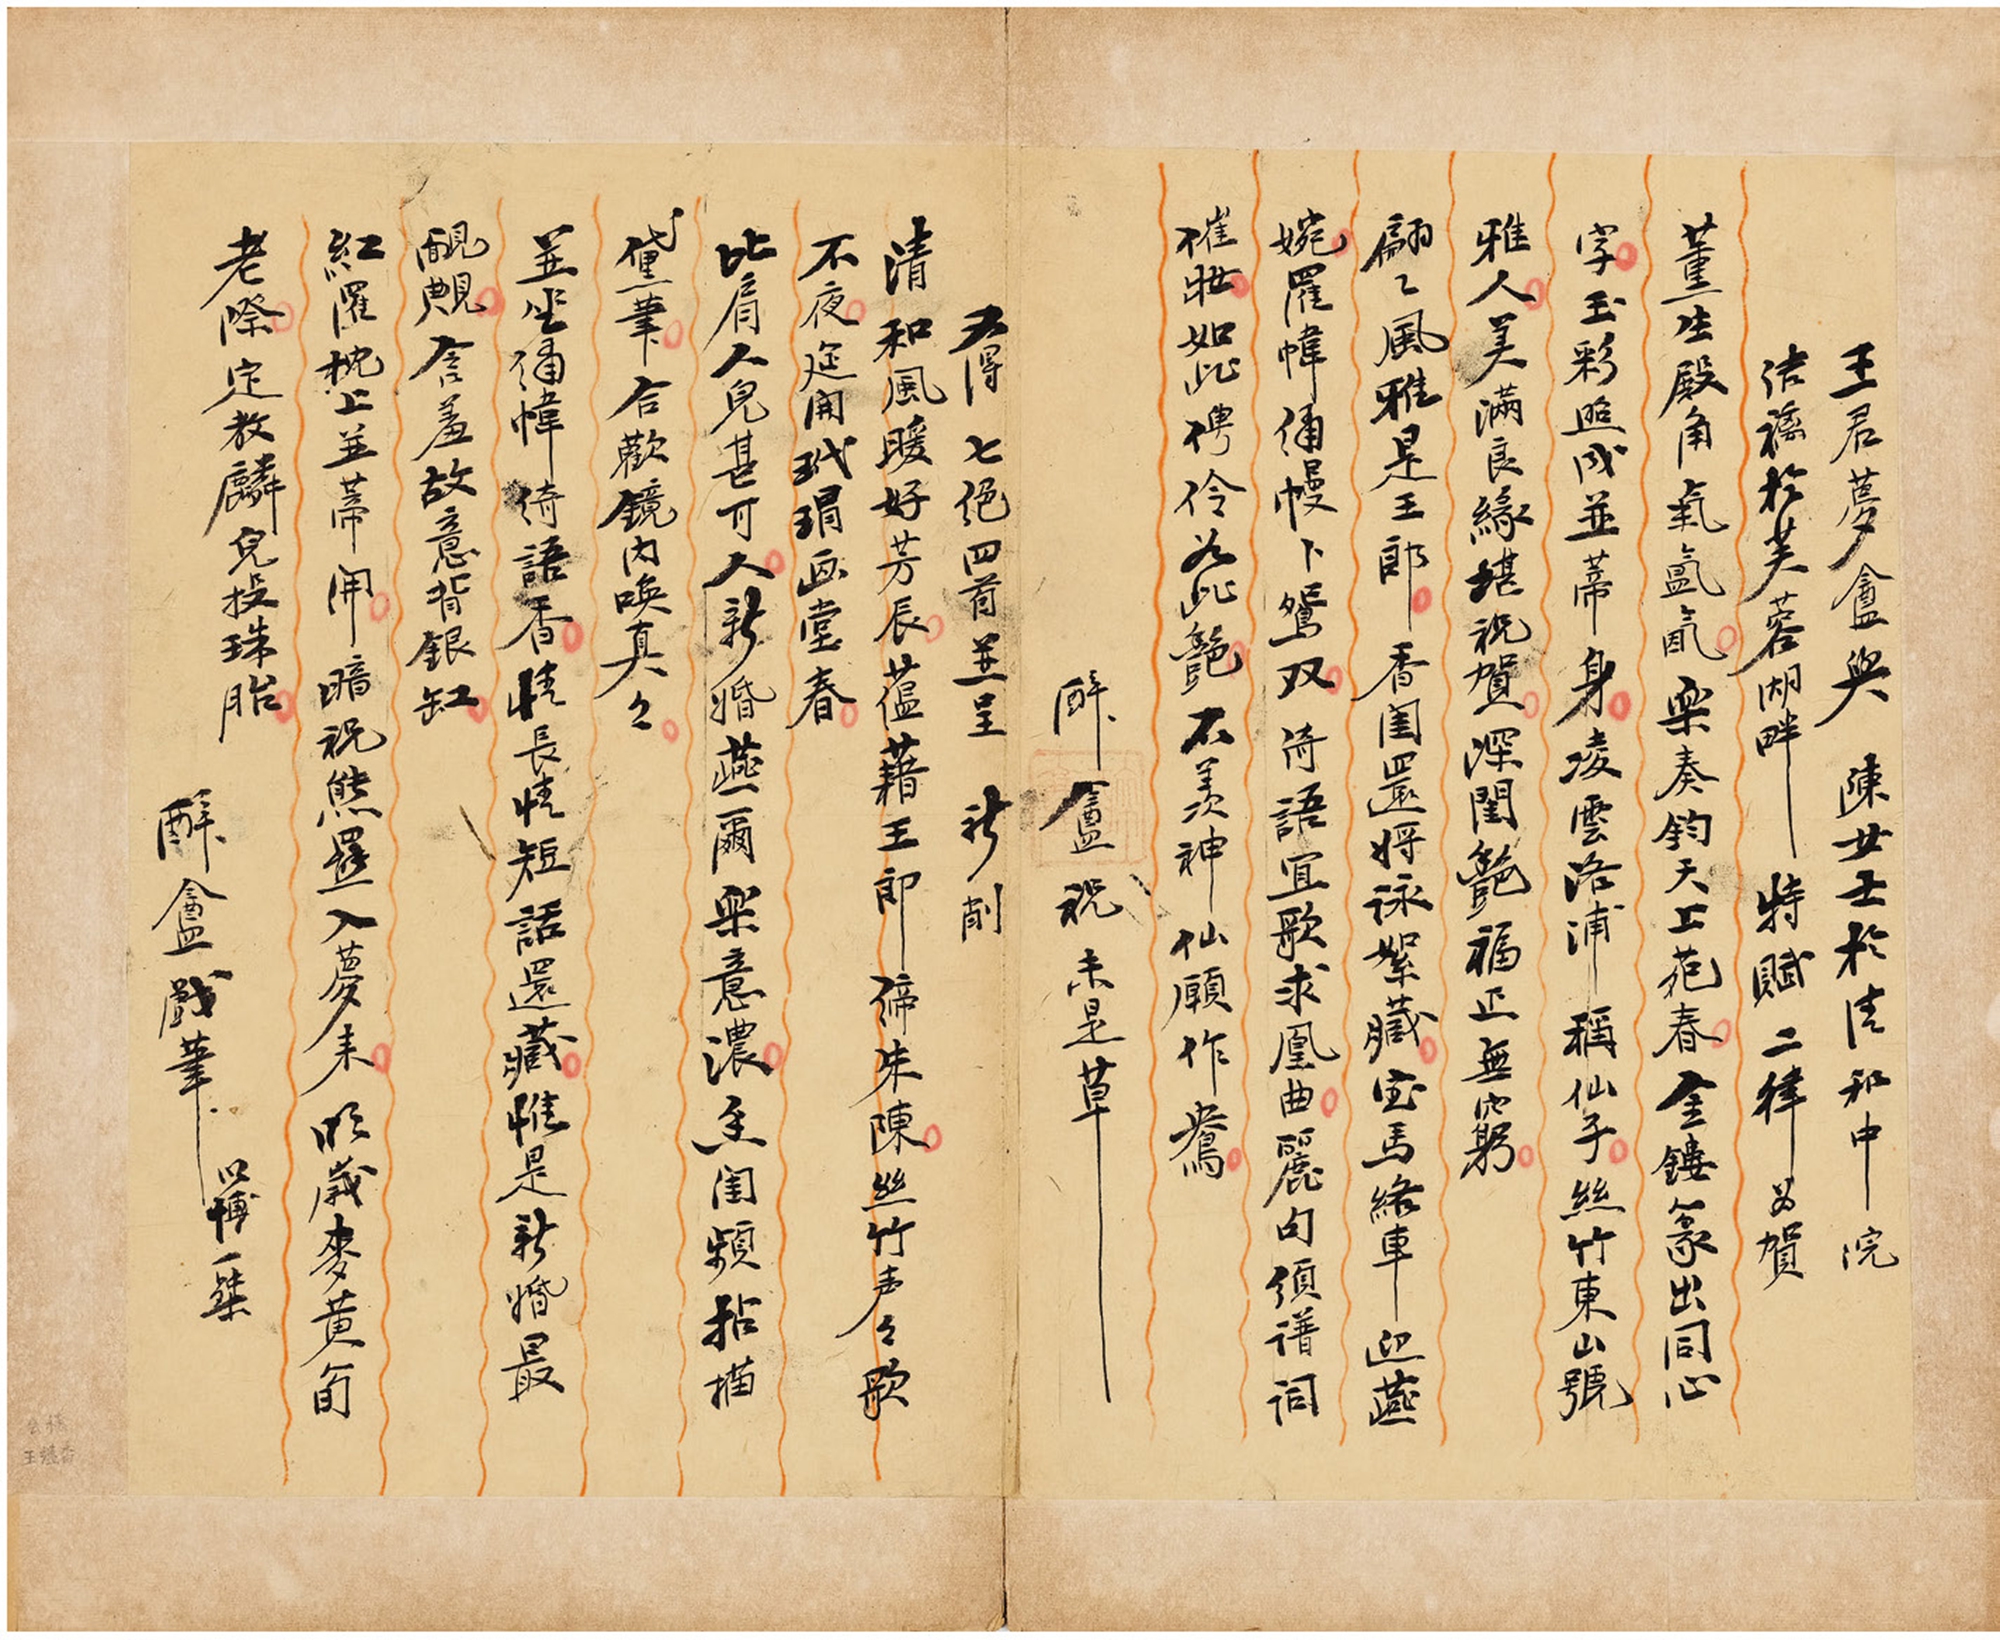 王君夢盦與　陳女士於清和中浣
結褵於芙蓉湖畔　特賦二律以賀
薰生殿角氣氳氤樂奏鈞天上苑春金鏤篆出同心
字玉彩照成並蒂身凌雲洛浦稱仙子絲竹東山號
雅人美滿良緣堪祝賀深閨艷福正無窮
翩々風雅是王郎香閨還將詠絮藏宝馬絡車迎燕
婉羅幃繡幔卜鴛双綺語宜歌求凰曲麗句須譜詞
催妝如此娉伶如此艷不羨神仙願作鴦
醉盦祝未是草
又得七絕四首並呈　斧削
清和風暖好芳辰蘊藉王郎締朱陳絲竹声々歌
不夜筵開玳瑁画堂春
比肩人兒甚可人新婚燕爾樂意濃至闺頻拈描
黛筆合歡鏡內喚真々
並坐繡幃綺語香情長情短話還藏惟是新婚最
靦覥含羞故意背銀缸
紅羅枕上並蒂開暗祝熊羆入夢来明歲麥黄旬
老際定教麟兒投珠胎
醉盦戲筆
以博一粲